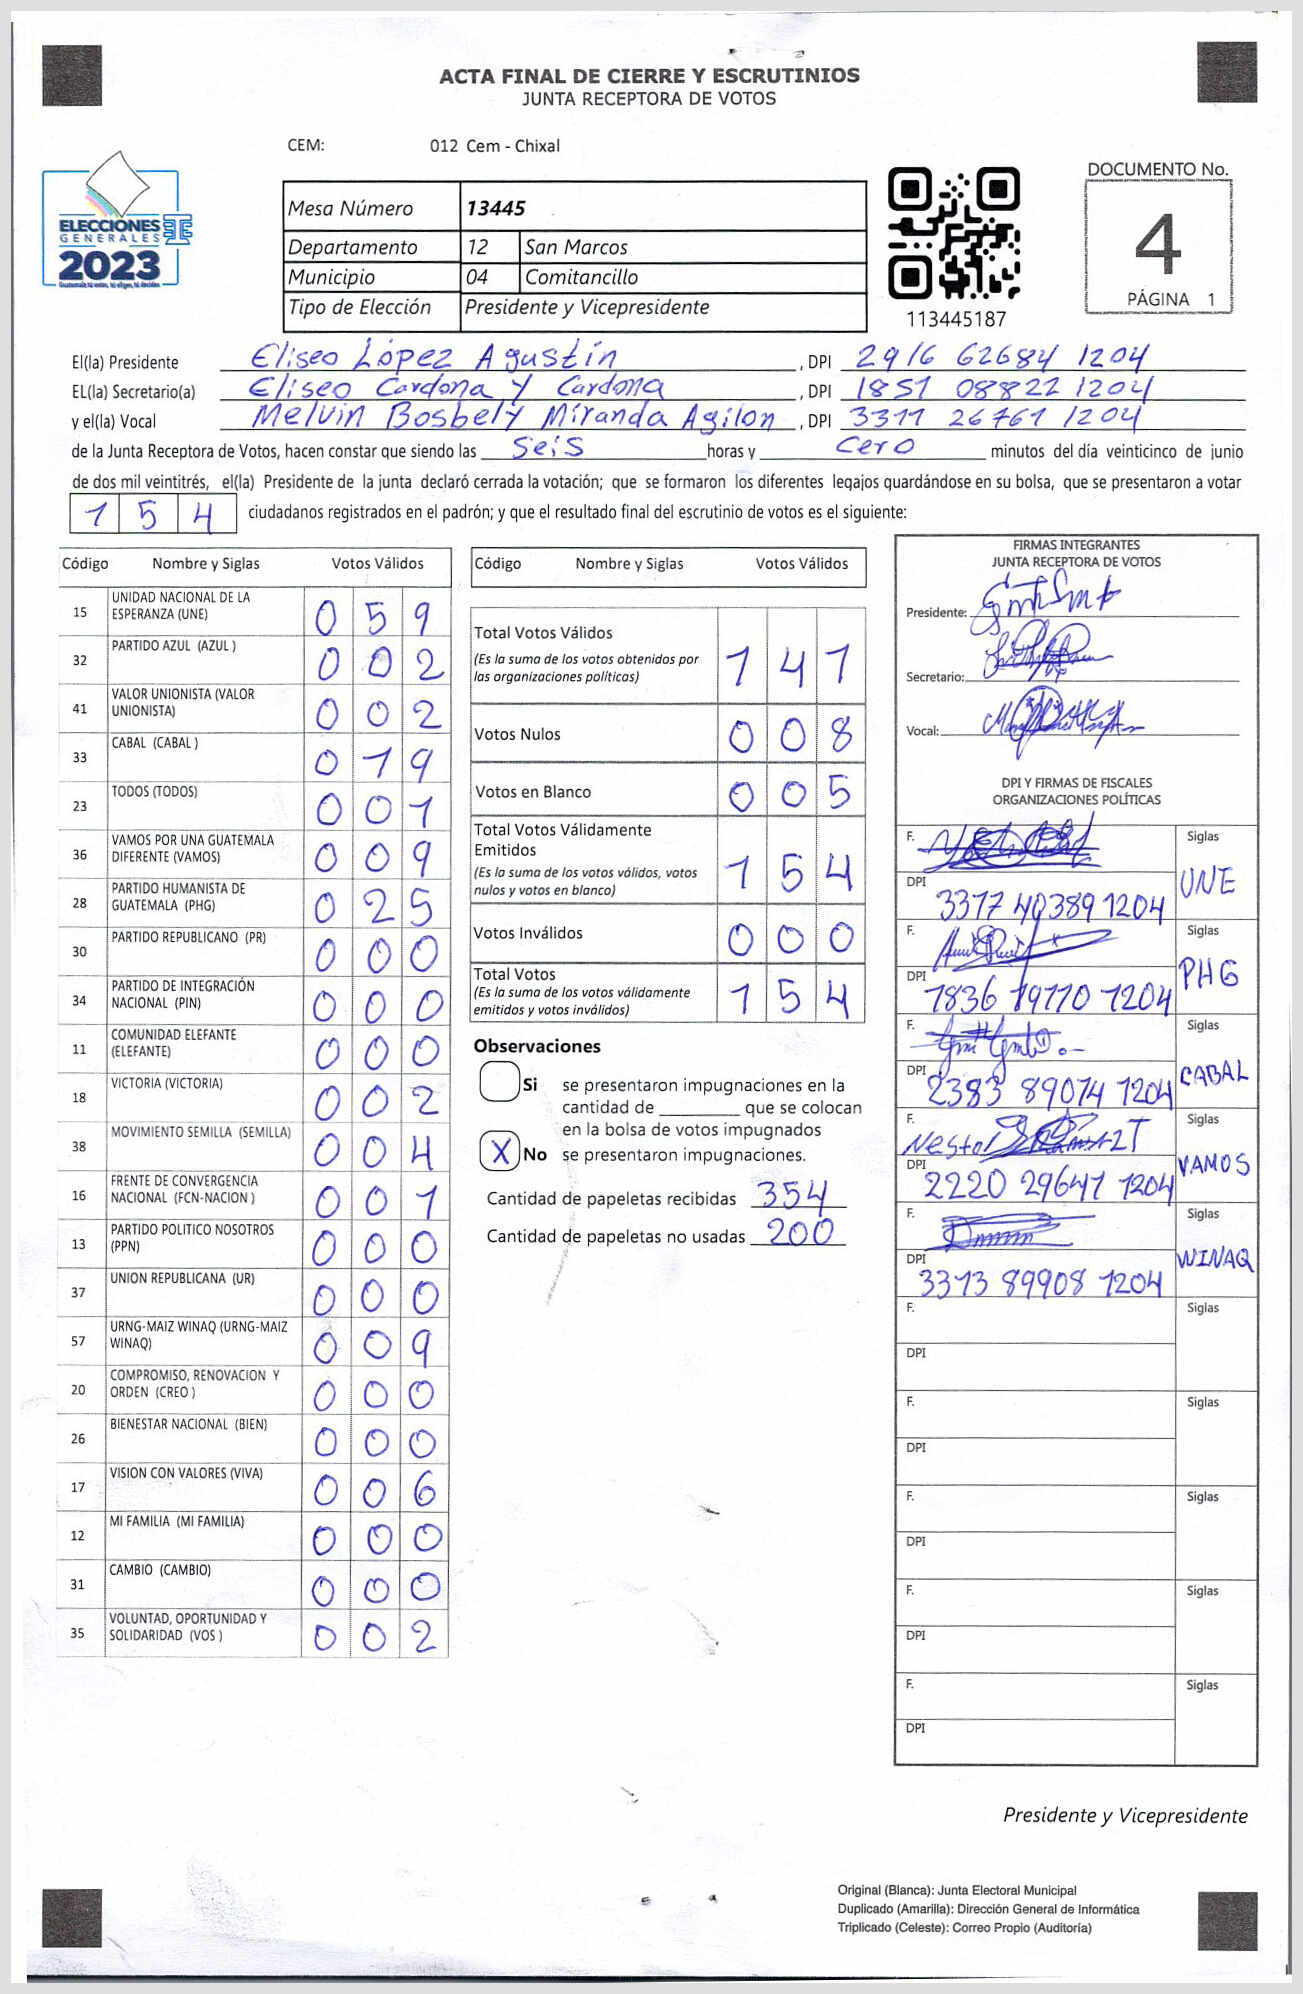 ACTA FINAL DE CIERRE Y ESCRUTINIOS
JUNTA RECEPTORA DE VOTOS
CEM: 012 Cem - Chixal
ELECCIONES
GENERALES
2023
Guatemala, tú votas, tú eliges, tú decides
Mesa Número 13445
Departamento 12 San Marcos
Municipio 04 Comitancillo
Tipo de Elección Presidente y Vicepresidente
113445187
DOCUMENTO No.
4
PÁGINA 1
El(la) Presidente Eliseo López Agustín , DPI 2916 62684 1204
EL(la) Secretario(a) Eliseo Cardona y Cardona , DPI 1851 08822 1204
y el(la) Vocal Melvin Bosbely Miranda Agilon , DPI 3311 26761 1204
de la Junta Receptora de Votos, hacen constar que siendo las Seis horas y Cero minutos del día veinticinco de junio
de dos mil veintitrés, el(la) Presidente de la junta declaró cerrada la votación; que se formaron los diferentes legajos guardándose en su bolsa, que se presentaron a votar
1 5 4 ciudadanos registrados en el padrón; y que el resultado final del escrutinio de votos es el siguiente:
Código Nombre y Siglas Votos Válidos
15 UNIDAD NACIONAL DE LA ESPERANZA (UNE) 0 5 9
32 PARTIDO AZUL (AZUL ) 0 0 2
41 VALOR UNIONISTA (VALOR UNIONISTA) 0 0 2
33 CABAL (CABAL ) 0 1 9
23 TODOS (TODOS) 0 0 1
36 VAMOS POR UNA GUATEMALA DIFERENTE (VAMOS) 0 0 9
28 PARTIDO HUMANISTA DE GUATEMALA (PHG) 0 2 5
30 PARTIDO REPUBLICANO (PR) 0 0 0
34 PARTIDO DE INTEGRACIÓN NACIONAL (PIN) 0 0 0
11 COMUNIDAD ELEFANTE (ELEFANTE) 0 0 0
18 VICTORIA (VICTORIA) 0 0 2
38 MOVIMIENTO SEMILLA (SEMILLA) 0 0 4
16 FRENTE DE CONVERGENCIA NACIONAL (FCN-NACION ) 0 0 1
13 PARTIDO POLITICO NOSOTROS (PPN) 0 0 0
37 UNION REPUBLICANA (UR) 0 0 0
57 URNG-MAIZ WINAQ (URNG-MAIZ WINAQ) 0 0 9
20 COMPROMISO, RENOVACION Y ORDEN (CREO ) 0 0 0
26 BIENESTAR NACIONAL (BIEN) 0 0 0
17 VISION CON VALORES (VIVA) 0 0 6
12 MI FAMILIA (MI FAMILIA) 0 0 0
31 CAMBIO (CAMBIO) 0 0 0
35 VOLUNTAD, OPORTUNIDAD Y SOLIDARIDAD (VOS ) 0 0 2
Código Nombre y Siglas Votos Válidos
Total Votos Válidos
(Es la suma de los votos obtenidos por
las organizaciones políticas) 1 4 1
Votos Nulos 0 0 8
Votos en Blanco 0 0 5
Total Votos Válidamente
Emitidos
(Es la suma de los votos válidos, votos
nulos y votos en blanco) 1 5 4
Votos Inválidos 0 0 0
Total Votos
(Es la suma de los votos válidamente
emitidos y votos inválidos) 1 5 4
Observaciones
Si se presentaron impugnaciones en la
cantidad de ________ que se colocan
en la bolsa de votos impugnados
X No se presentaron impugnaciones.
Cantidad de papeletas recibidas 354
Cantidad de papeletas no usadas 200
FIRMAS INTEGRANTES
JUNTA RECEPTORA DE VOTOS
Presidente:
Secretario:
Vocal:
DPI Y FIRMAS DE FISCALES
ORGANIZACIONES POLÍTICAS
F. Siglas
DPI 3377 40389 1204 UNE
F. Siglas
DPI 1836 19770 1204 PHG
F. Siglas
DPI 2383 89074 1204 CABAL
F. Nestor Siglas
DPI 2220 29641 1204 VAMOS
F. Siglas
DPI 3373 89908 1204 WINAQ
F. Siglas
DPI
F. Siglas
DPI
F. Siglas
DPI
F. Siglas
DPI
F. Siglas
DPI
Presidente y Vicepresidente
Original (Blanca): Junta Electoral Municipal
Duplicado (Amarilla): Dirección General de Informática
Triplicado (Celeste): Correo Propio (Auditoría)